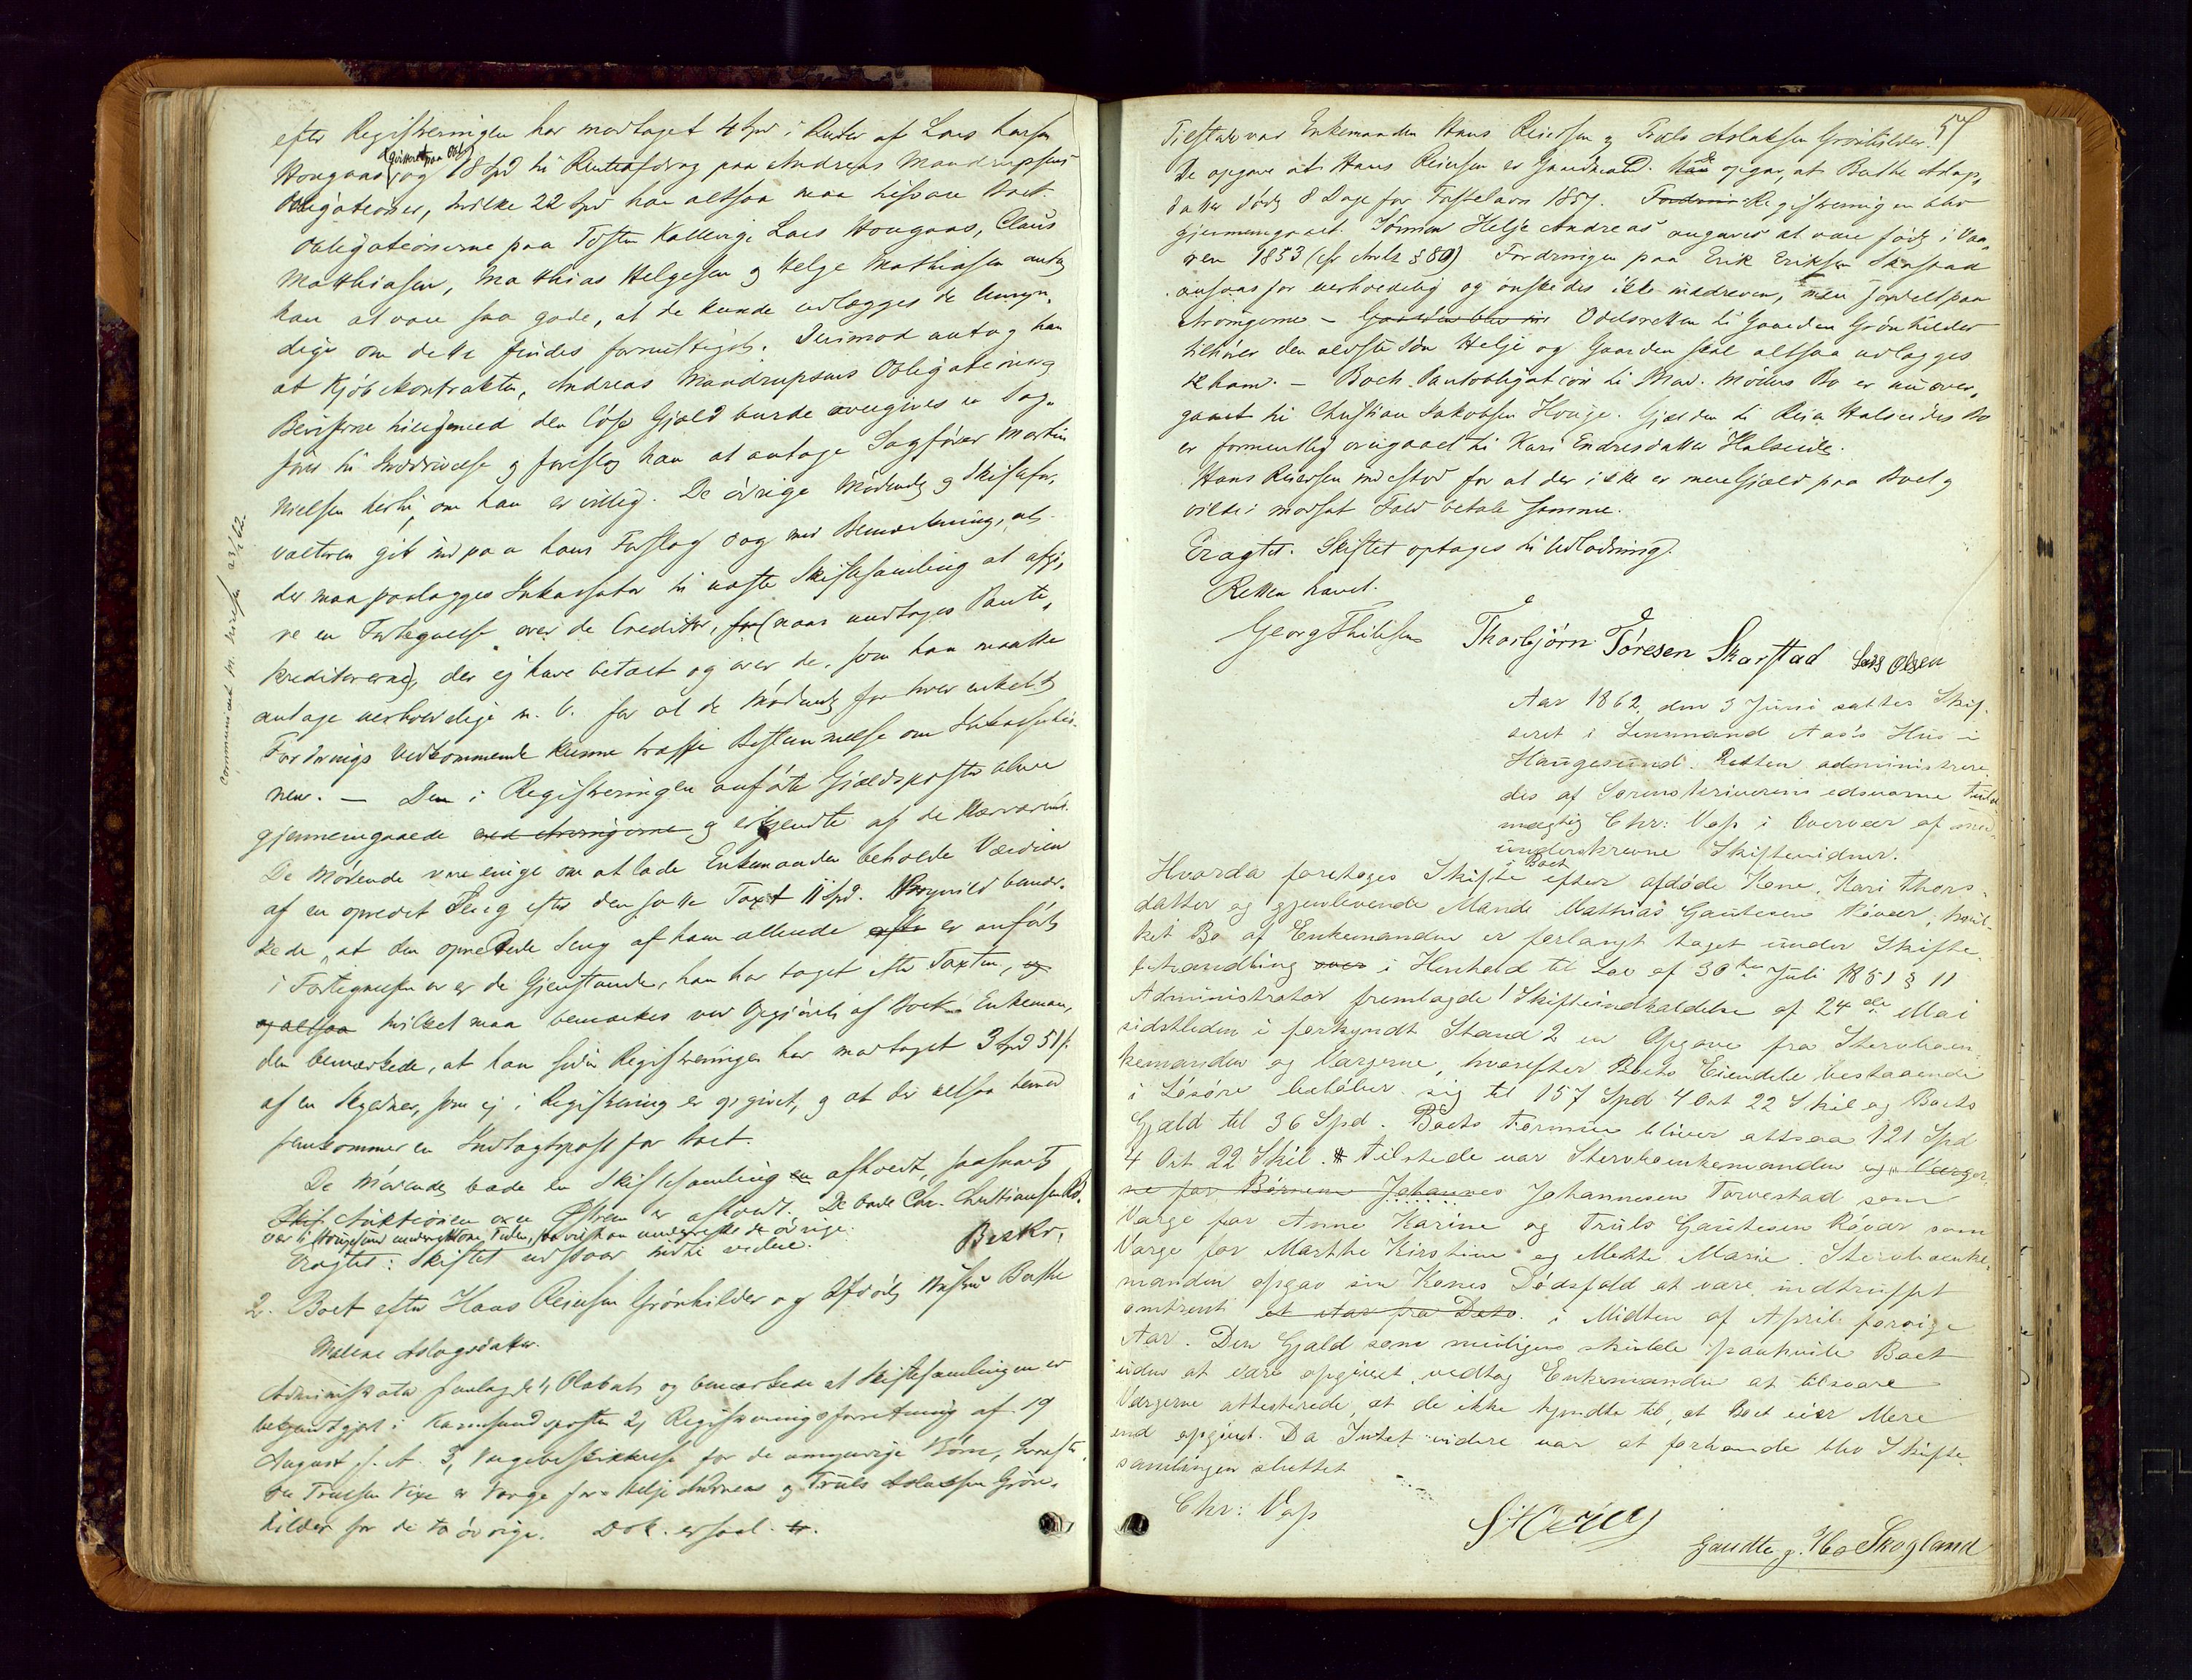 efter Registreringen har modtaget 4 Spd i Renter af Lars Larsen
Hougaas (qvitteret paa Obl.) og 18 Spd til Renteafdrag paa Andreas Mandrupsens
Obligationer, hvilke 22 Spd han altsaa maa tilsvare Boet.
Obligationerne paa Tosten Kallevig, Lars Hougaas, Claus
Matthiasen, Matthias Helgesen og Helge Mathiasen antog
han at være saa gode, at de kunde udlægges de Umyn,
dige om dette findes fornuftigst. Derimod antog han
at Kjöbekontrakten, Andreas Mandrupsens Obligation og
Beviserne tilligemed den löse Gjæld burde overgives en Sag-
förer til Inddrivelse og foreslog han at antage Sagförer Martin
Nielsen hertil, om han er villig. De övrige Mödende og Skifte for,
valteren gik ind paa hans Forslag dog med Bemærkning, at
der maa paalægges Inkassator til næste Skiftesamling at afgi,
ve en Fortegnelse over de Creditorer, (naar undtages Pante,
kreditorerne), der ej have betalt og over de, som han maatte
antage uerholdelige m. V. for at de Mödende for hver enkelt
Fordrings Vedkommende kunne træffe Bestemmelse om Inkassatio-
nen. — Den i Registreringen anförte Gjældsposter bleve
gjennemgaaede med Arvingerne og erkjendte af de Nærværende.
De Mödende vare enige om at lade Enkemanden beholde Værdien
af en opredt Seng efter den satte Taxt 11 Spd. bemær-
kede, at den opredede Seng af ham allerede er anfört
i Fortegnelsen over de Gjenstande, han har taget efter Taxten, og
og altsaa hvilket maa bemærkes ved Opgjöret af Boet. Enkeman,
den bemærkede, at han siden Registreringen har modtaget 3 Spd 51 s.
af en Skyldner, som ej i Registrering er opgivet, og at der altsaa herved
fremkommer en Indtægtspost for Boet.
De Mödende bade en Skiftesamling afholdt, saasnart
Skif Auktionen over er afholdt. De bade Chr. Christiansen
Eragtet: Skiftet udstaar indtil videre.
2. Boet efter Hans Reiersen Grönhilder og Afdöde Hustru Berthe
Malene Aslagsdatter.
Administrator fremlagde 1, Olabrets og bemærkede at Skiftesamlingen er
bekjendtgjort i Karmsundsposten 2, Registreringsforretning af 19
August f. A. 3, Vergebeskikkelse for de umyndige Börn, hvorefter
Truelsen Vixe er Verge for Helje Andreas og Truls Aslaksen Grön-
hilder for de to övrige. Dok. ersaal.
Communicat M. Nielsen 23/6 62.
57
Tilstede var Enkemanden Hans Reiersen og Truls Aslaksen Grönhilder.
De opgave at Hans Reiersen er Gaardmand. De opgav, at Berthe Aslags,
datter döde 8 Dage för Fastelavn 1857. Fordrin Registreringen blev
gjennemgaaet. Sönnen Helje Andreas angaves at være föd i Vaa,
ren 1853 (cfr Arvel. § 80). Fordringen paa Erik Eriksen Skrstad
ansaaes for uerholdelig og önskedes ikke inddreven, men fordelt paa
Arvingerne — Gaarden blev in Odelsretten til Gaarden Grönhilder
tilhörer den ældste Sön Helje og Gaarden skal altsaa udlægges
ham. — Boets Pantobligation til Mad. Möllers Bo er nu over,
gaaet til Christian Jakobsen Houge. Gjælden til Reier Halseides Bo
er formentlig overgaaet til Kari Endresdatter Halseide.
Hans Reiersen indestod for at der ikke er mere Gjæld paa Boet og
vilde i modsat Fald betale samme.
Eragtet. Skiftet optages til Udlodning.
Retten hævet.
Georg Thilesen Thorbjörn Töresen Skarstad Lars Olsen
Aar 1862, den 3 Juni sattes Skif-
teret i Lensmand Aas's Hus i
Haugesund. Retten administrere
des af Sorenskriverens edsvorne Fuld
mægtig Chr: Vass i Overvær af med
underskrevne Skiftevidner.
Hvorda foretoges Skifte i Boet efter afdöde Kone, Kari Thors-
datter og gjenlevende Mand Mathias Gautesen Röver, hvil-
ket Bo af Enkemanden er forlangt taget under Skifte,
behandling over i Henhold til Lov af 30te Juli 1851 § 11
Administrator fremlagde 1 Skifteindkaldelse af 24de Mai
sidstleden i forkyndt Stand 2 en Opgave fra Stervboen-
kemanden og Værgerne, hvorefter Boets Eiendele bestaaende
i Lösöre belöber sig til 157 Spd 4 Ort 22 Skil og Boets
Gjæld til 36 Spd. Boets Formue bliver altsaa 121 Spd
4 Ort 22 Skil. Tilstede var Stervboenkemanden og Værger,
ne for Börnene Johannes Johannesen Torvestad som
Værge for Anne Karine og Truls Gautesen Röver som
Værge for Marthe Kirstine og Mette Marie. Stervboenke,
manden opgav sin Kones Dödsfald at være indtruffet
omtrent et Aar fra Dato. i Midten af April forrige
Aar. Den Gjæld som muligens skulde paahvile Boet
uden at være opgivet, vedtog Enkemanden at tilsvare
Værgerne attesterede, at de ikke kjendte til, at Boet eier Mere
end opgivet. Da Intet videre var at forhande blev Skifte
samlingen sluttet
Chr: Vass
Gaudte J. Skogland